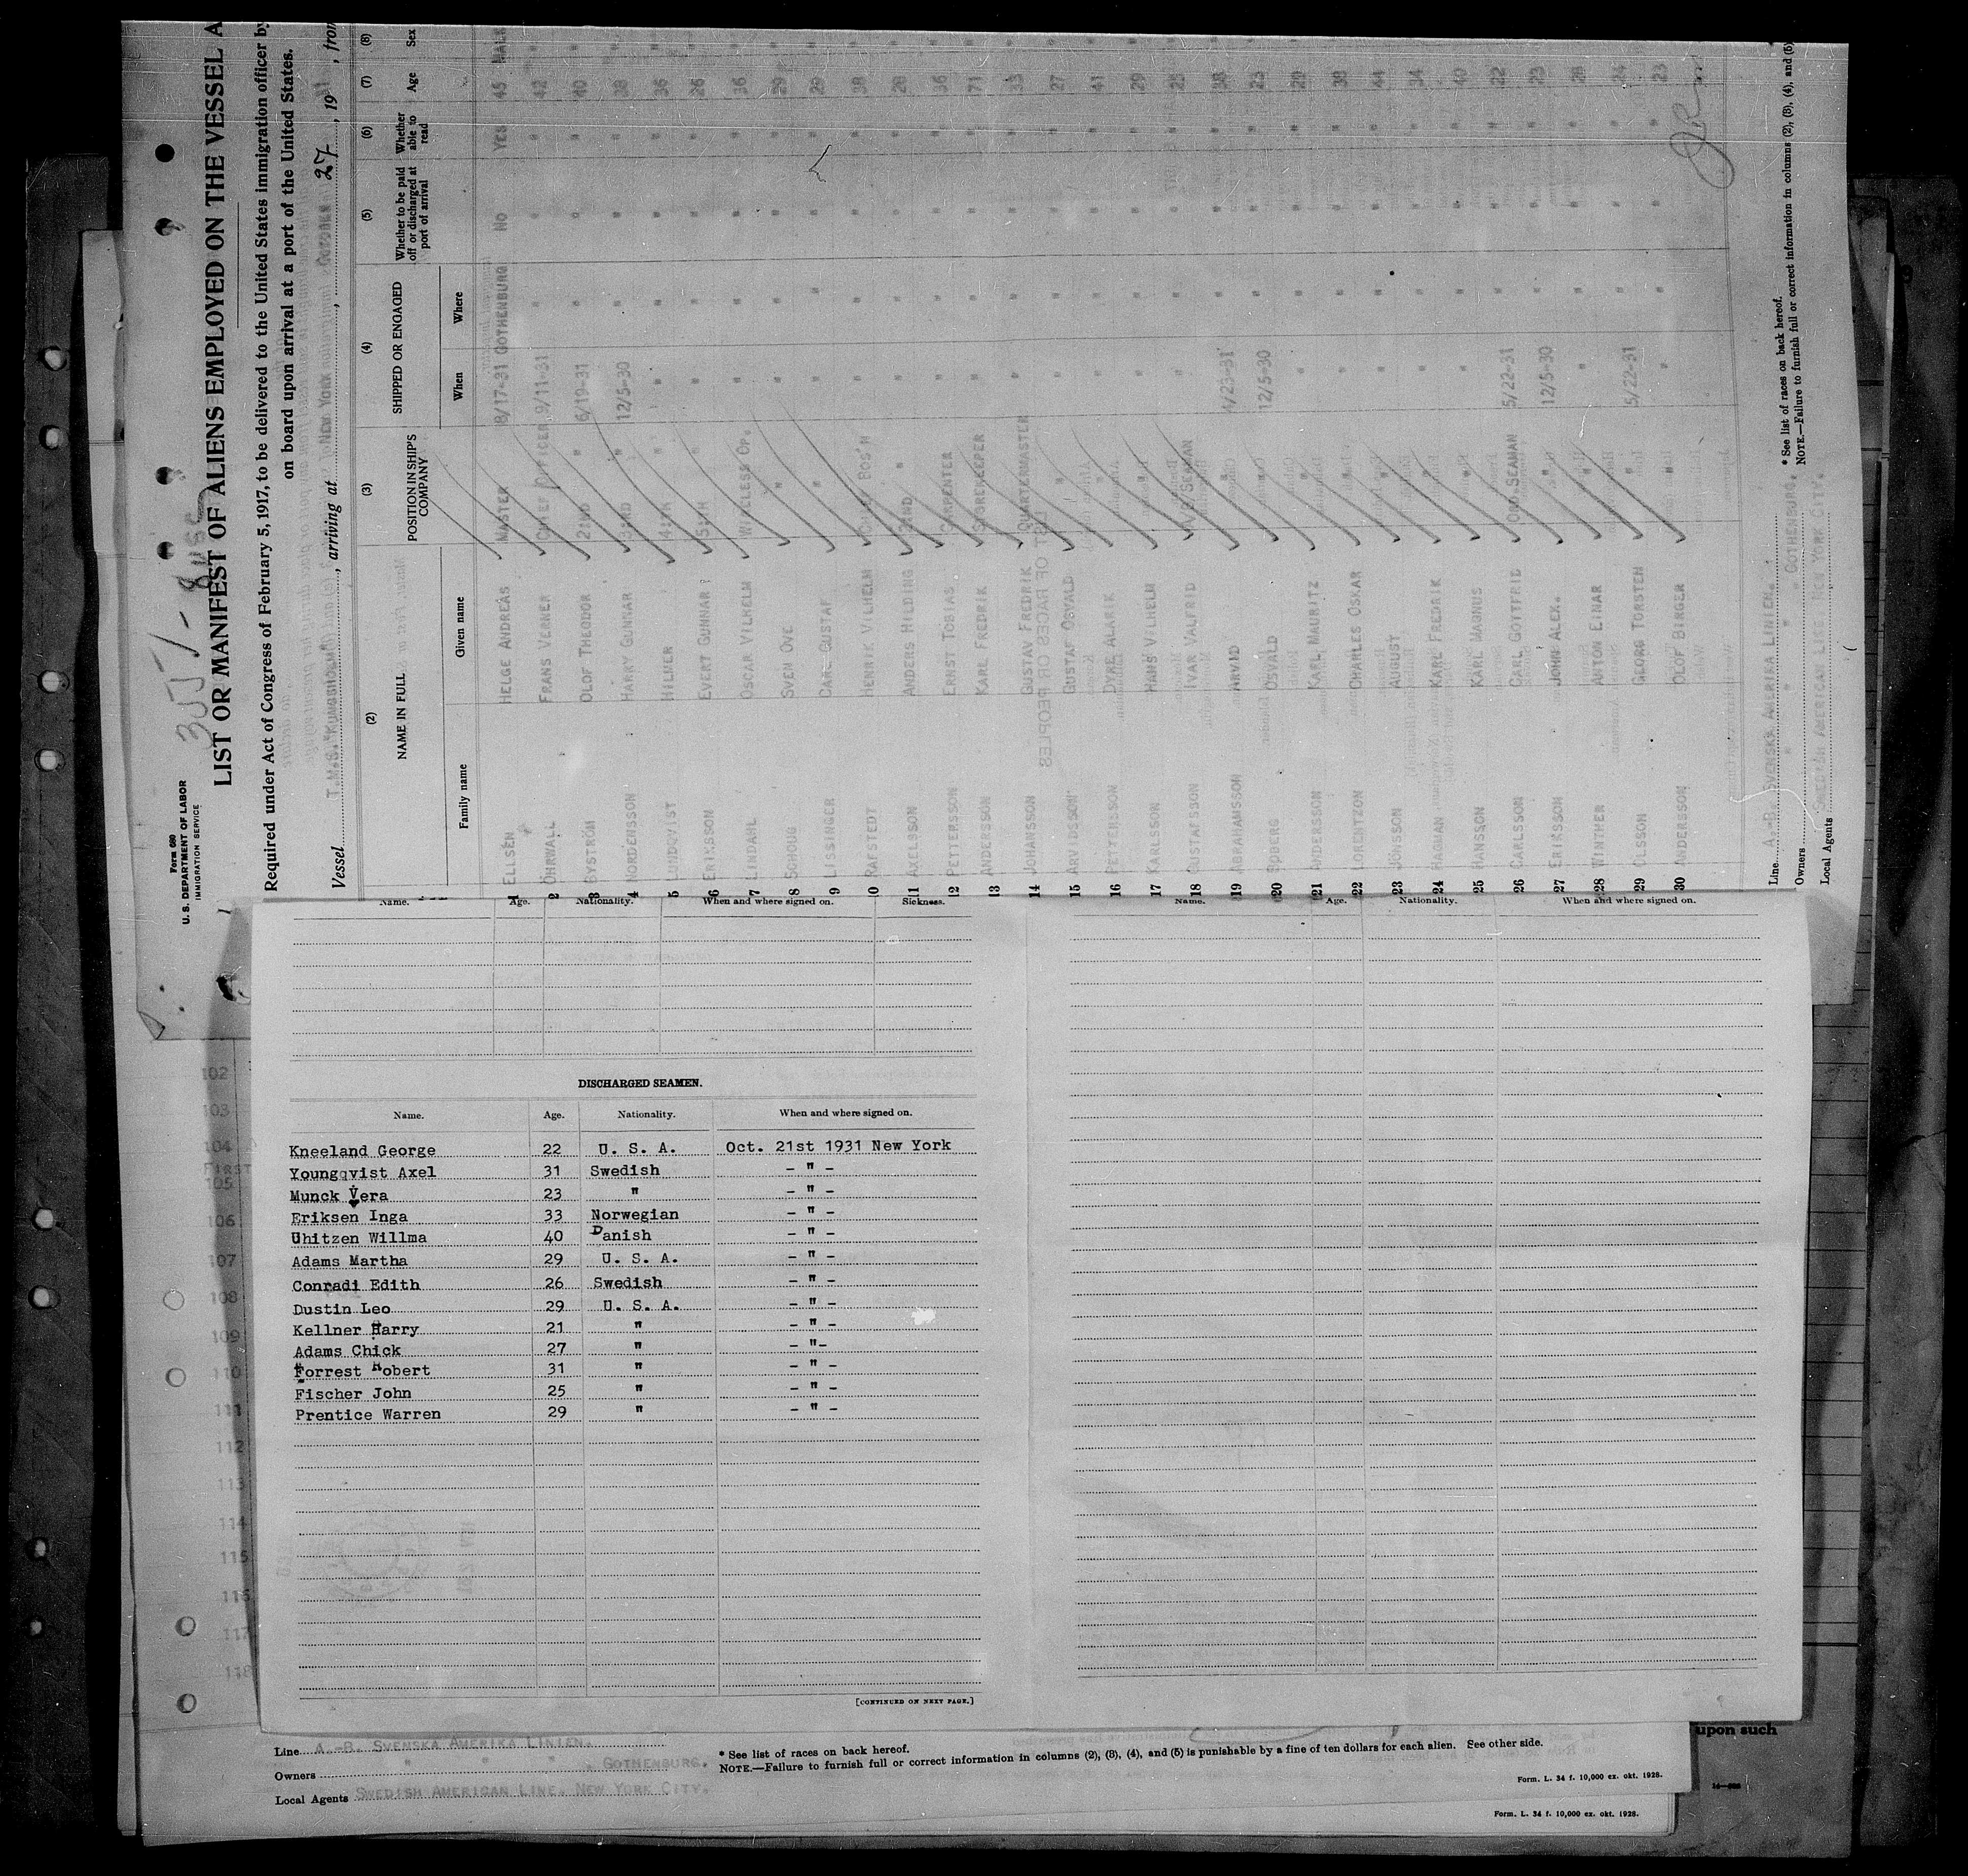 Form 680
U. S. DEPARTMENT OF LABOR
IMMIGRATION SERVICE
LIST OR MANIFEST OF ALIENS EMPLOYED ON THE VESSEL A
Required under Act of Congress of February 5, 1917, to be delivered to the United States immigration officer by
on board upon arrival at a port of the United States.
Vessel T.M.S. "KUNGSHOLM", arriving at NEW YORK, OCTOBER 27, 1931, from
(2) (3) (4) (5) (6) (7) (8)
NAME IN FULL POSITION IN SHIP'S COMPANY SHIPPED OR ENGAGED Whether to be paid off or discharged at port of arrival Whether able to read Age Sex
Family name Given name When Where
1 ELLSÉN HELGE ANDREAS MASTER 8/17-31 GOTHENBURG NO YES 45 MALE
2 ÖHRWALL FRANS VERNER CHIEF OFFICER 9/11-31 " " " 42 "
3 BYSTRÖM OLOF THEODOR 2:ND " 6/19-31 " " " 40 "
4 NORDENSSON HARRY GUNNAR 3:RD " 12/5-30 " " " 38 "
5 LINDQVIST HILMER 4:TH " " " " " 36 "
6 ERIKSSON EVERT GUNNAR 5:TH " " " " " 26 "
7 LINDAHL OSCAR VILHELM WIRELESS OP. " " " " 36 "
8 SCHOUG SVEN OVE " " " " " 29 "
9 LISSINGER CARL GUSTAF " " " " " 29 "
10 RAFSTEDT HENRIK VILHELM CHIEF BOS'N " " " " 38 "
11 AXELSSON ANDERS HILDING 2:ND " " " " " 28 "
12 PETTERSSON ERNST TOBIAS CARPENTER " " " " 36 "
13 ANDERSSON KARL FREDRIK STOREKEEPER " " " " 71 "
14 JOHANSSON GUSTAV FREDRIK QUARTERMASTER " " " " 33 "
15 ARVIDSSON GUSTAF OSVALD " " " " " 27 "
16 PETTERSSON DYRE ALARIK " " " " " 41 "
17 KARLSSON HANS VILHELM " " " " " 29 "
18 GUSTAFSSON IVAR VALFRID A/B SEAMAN " " " " 25 "
19 ABRAHAMSSON ARVID " 4/23-31 " " " 38 "
20 BOBERG OSVALD " 12/5-30 " " " 23 "
21 ANDERSSON KARL MAURITZ " " " " " 29 "
22 LORENTZON CHARLES OSKAR " " " " " 39 "
23 JÖNSSON AUGUST " " " " " 44 "
24 HAGMAN KARL FREDRIK " " " " " 34 "
25 HANSSON KARL MAGNUS " " " " " 40 "
26 CARLSSON CARL GOTTFRID ORD. SEAMAN 5/22-31 " " " 22 "
27 ERIKSSON JOHN ALEX. " 12/5-30 " " " 23 "
28 WINTHER ANTON EINAR " " " " " 28 "
29 OLSSON GEORG TORSTEN " 5/22-31 " " " 24 "
30 ANDERSSON OLOF BIRGER " " " " " 23 "
Line A.-B. SVENSKA AMERIKA LINIEN.
Owners " " " GOTHENBURG.
Local Agents SWEDISH AMERICAN LINE, NEW YORK CITY.
* See list of races on back hereof.
NOTE.—Failure to furnish full or correct information in columns (2), (3), (4), and (5)
Name. Age. Nationality. When and where signed on. Sickness.
Name. Age. Nationality. When and where signed on.
DISCHARGED SEAMEN.
Name. Age. Nationality. When and where signed on.
Kneeland George 22 U. S. A. Oct. 21st 1931 New York
Youngqvist Axel 31 Swedish - " -
Munck Vera 23 " - " -
Eriksen Inga 33 Norwegian - " -
Uhitzen Willma 40 Danish - " -
Adams Martha 29 U. S. A. - " -
Conradi Edith 26 Swedish - " -
Dustin Leo 29 U. S. A. - " -
Kellner Harry 21 " - " -
Adams Chick 27 " - "-
Forrest Robert 31 " - " -
Fischer John 25 " - " -
Prentice Warren 29 " - " -
[CONTINUED ON NEXT PAGE.]
102
103
104
FIRST
105
106
107
108
109
110
111
112
113
114
115
116
117
118
upon such
Line A.-B. SVENSKA AMERIKA LINIEN.
Owners " " " , GOTHENBURG.
Local Agents SWEDISH AMERICAN LINE. NEW YORK CITY.
* See list of races on back hereof.
NOTE.—Failure to furnish full or correct information in columns (2), (3), (4), and (5) is punishable by a fine of ten dollars for each alien. See other side.
Form. L. 34 f. 10,000 ex. okt. 1928.
Form. L. 34 f. 10,000 ex. okt. 1928.